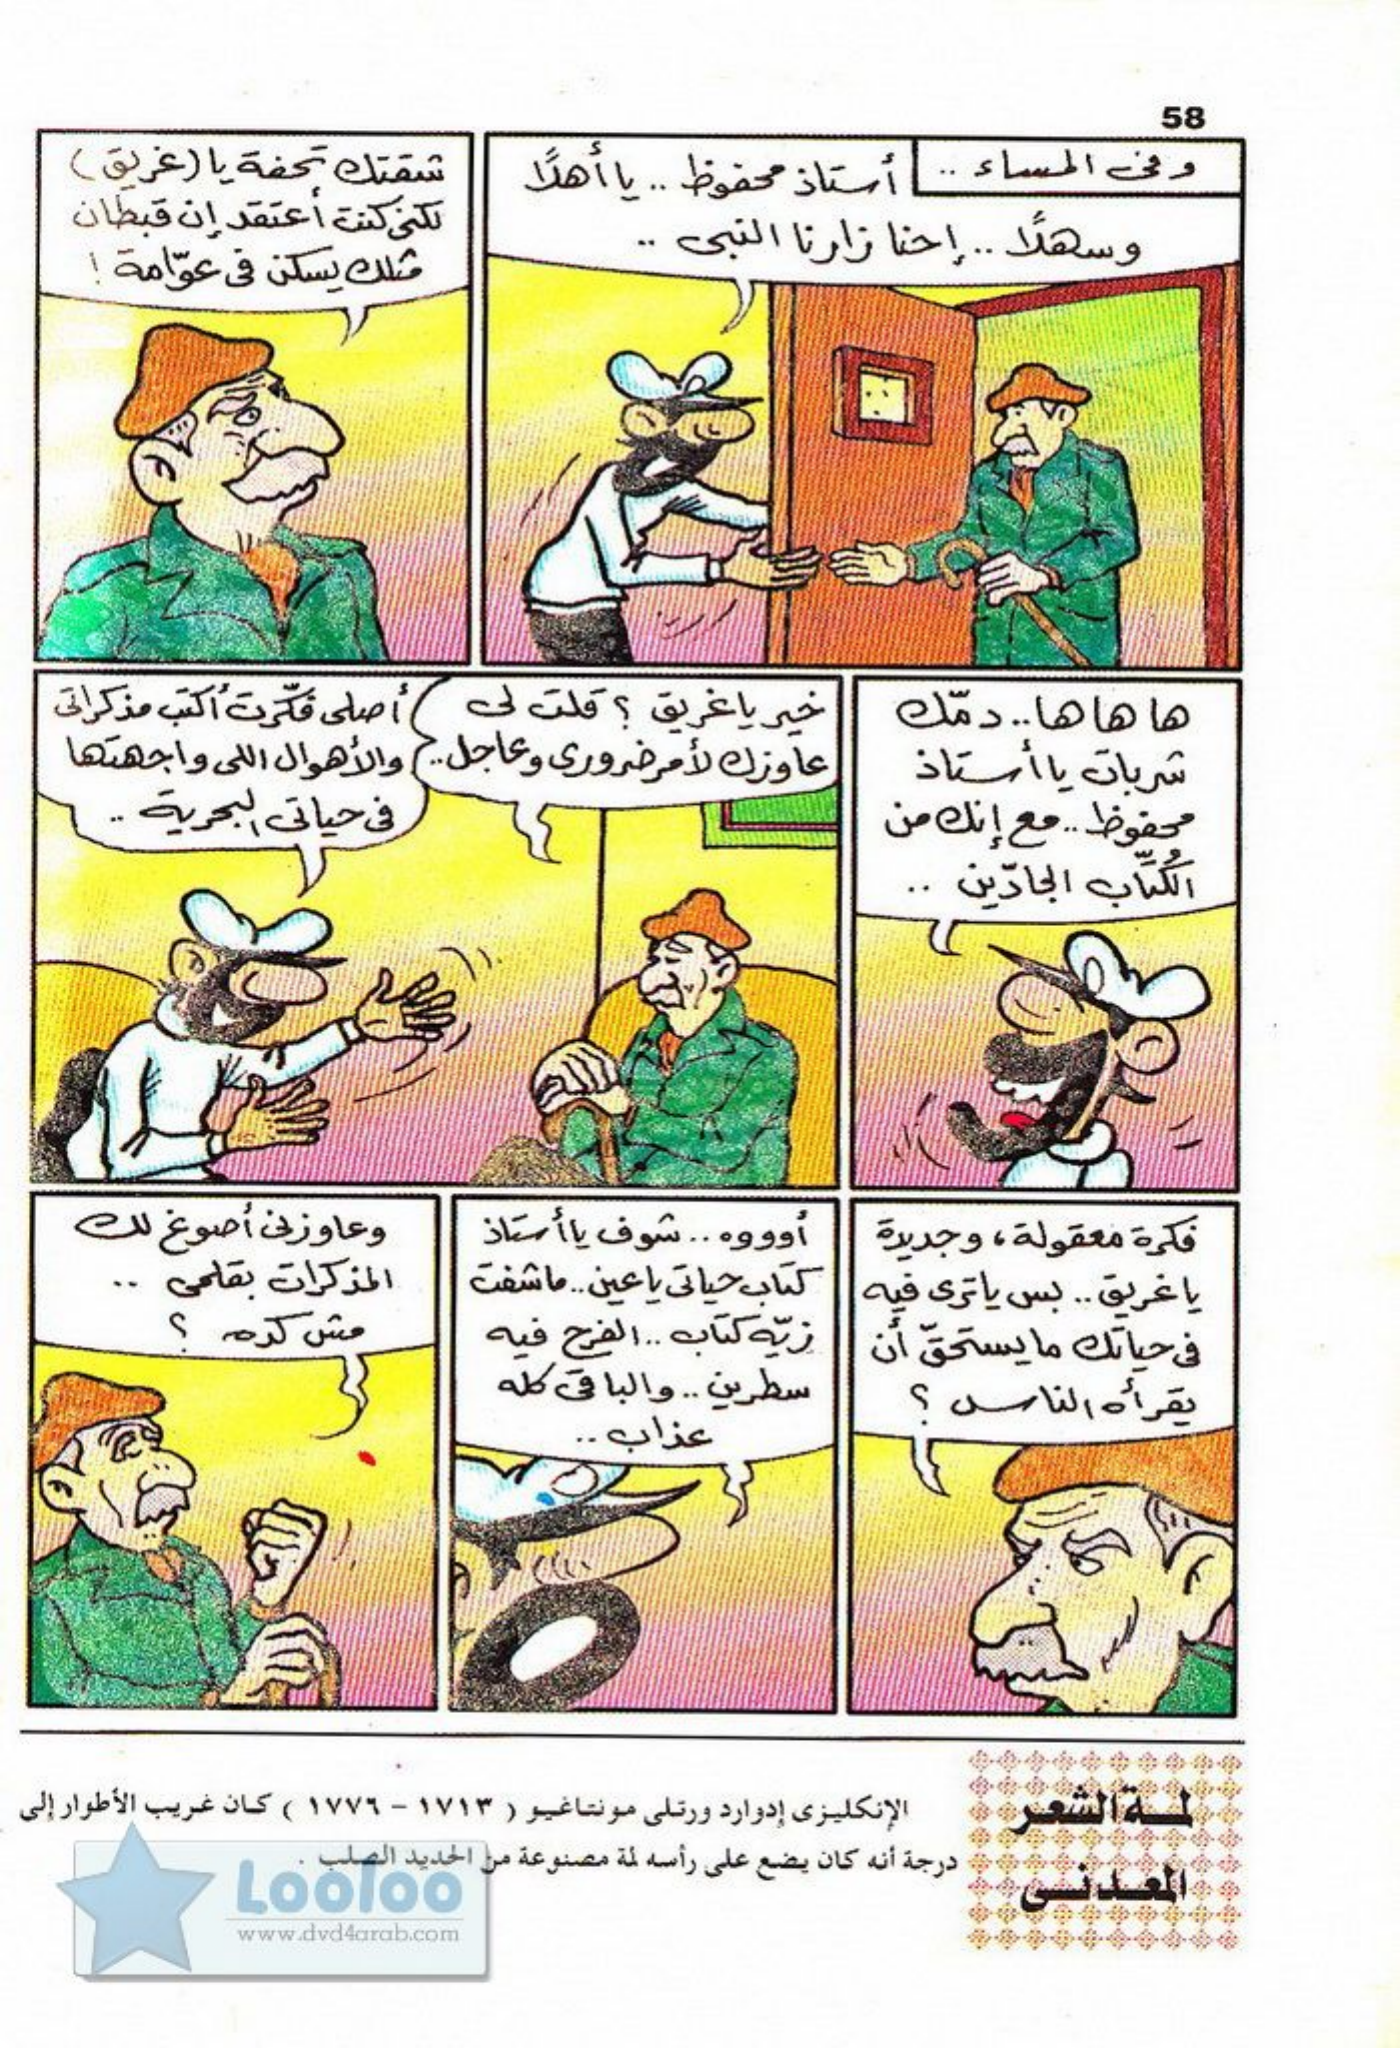 58
وفى المساء ..
أستاذ محفوظ .. يا أهلًا
وسهلًا .. إحنا زارنا النبى ..
شقتك تحفة يا (غريق)
لكنى كنت أعتقد إن قبطان
مثلك يسكن فى عوّامة !
ها ها ها .. دمّك
شربات يا أستاذ
محفوظ .. مع إنك من
الكُتَّاب الجادّين ..
خير يا غريق ؟ قلت لى
عاوزك لأمر ضرورى وعاجل ..
أصلى فكّرت أكتب مذكراتى
والأهوال اللى واجهتها
فى حياتى البحرية ..
فكرة معقولة ، وجديدة
يا غريق .. بس يا ترى فيه
فى حياتك ما يستحقّ أن
يقرأه الناس ؟
أوووه .. شوف يا أستاذ
كتاب حياتى يا عين .. ما شفت
زيّه كتاب .. الفرح فيه
سطرين .. والباقى كله
عذاب ..
وعاوزنى أصوغ لك
المذكرات بقلمى ..
مش كده ؟
لمـة الشعـر
المعـدنـى
الإنكليـزى إدوارد ورتلـى مـونتـاغيـو ( ١٧١٣ – ١٧٧٦ ) كـان غـريب الأطوار إلى
درجة أنه كان يضع على رأسه لمة مصنوعة من الحديد الصلب .
Looloo
www.dvd4arab.com